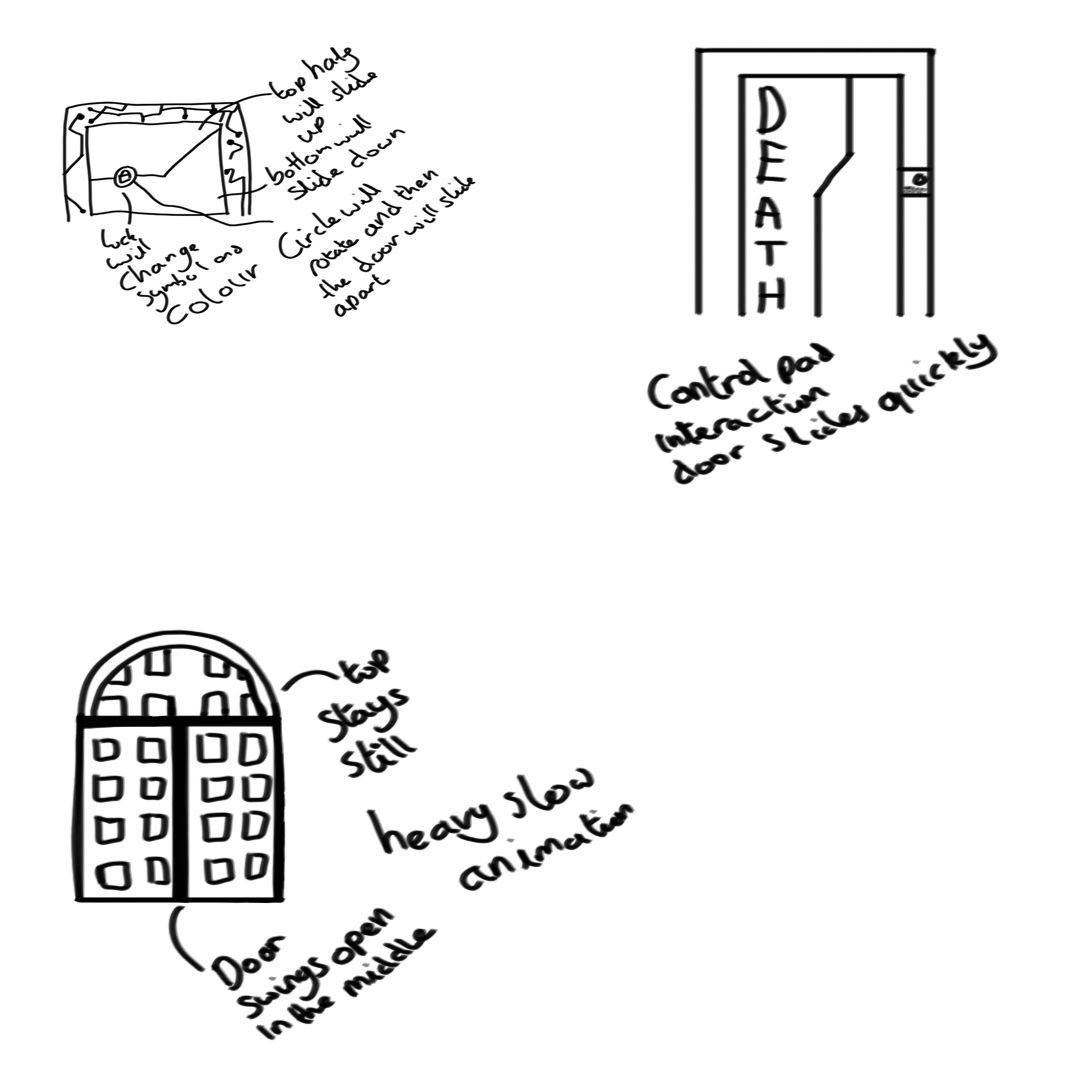 top half
will slide
up
bottom will
slide down
Circle will
rotate and then
the door will slide
apart
lock
will
change
symbol and
colour
D
E
A
T
H
Control pad
interaction
door slides quickly
top
stays
still
heavy slow
animation
Door
swings open
in the middle